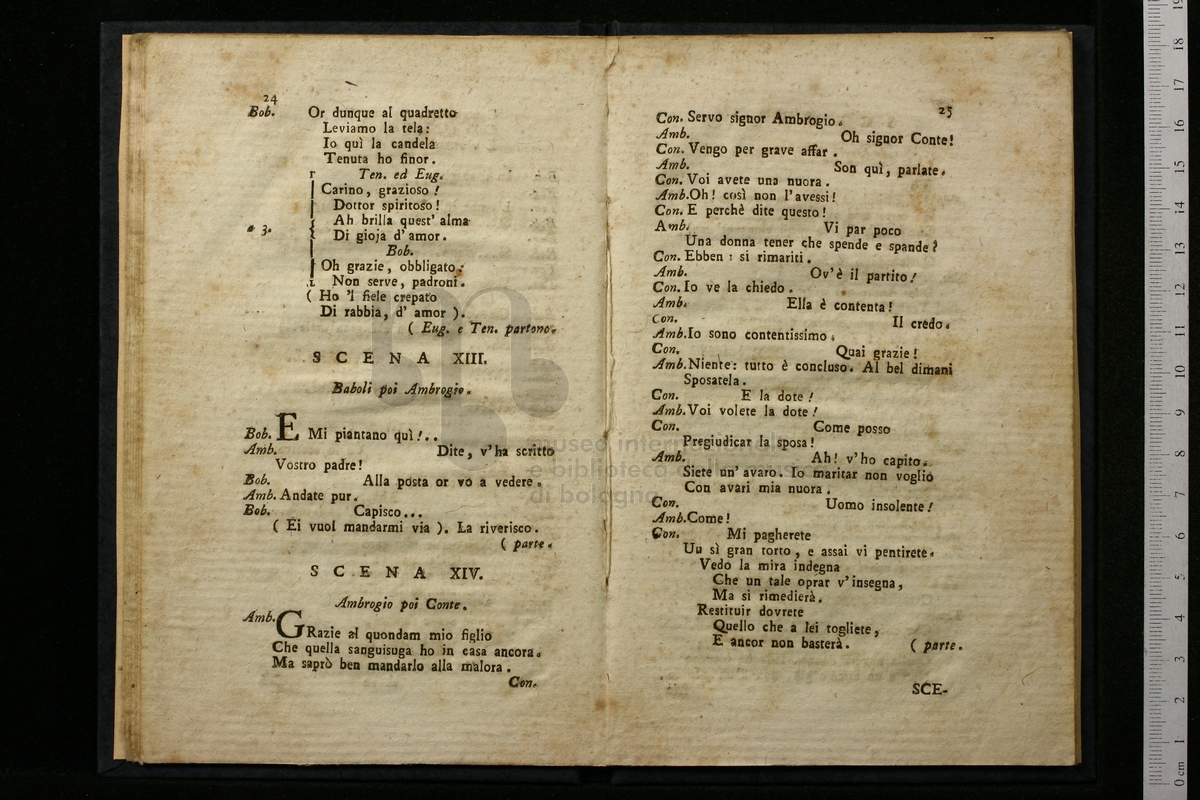 24
Bob. Or dunque al quadretto
Leviamo la tela:
Io quì la candela
Tenuta ho finor.
Ten. ed Eug.
Carino, grazioso!
Dottor spiritoso!
Ah brilla quest' alma
a 3. Di gioja d' amor.
Bob.
Oh grazie, obbligato:
Non serve, padroni.
( Ho 'l fiele crepato
Di rabbia, d' amor ).
( Eug. e Ten. partono.
SCENA XIII.
Baboli poi Ambrogio.
Bob. E Mi piantano quì!..
Amb. Dite, v'ha scritto
Vostro padre!
Bob. Alla posta or vo a vedere.
Amb. Andate pur.
Bob. Capisco...
( Ei vuol mandarmi via ). La riverisco.
( parte.
SCENA XIV.
Ambrogio poi Conte.
Amb. GRazie al quondam mio figlio
Che quella sanguisuga ho in casa ancora.
Ma saprò ben mandarlo alla malora.
Con.
25
Con. Servo signor Ambrogio.
Amb. Oh signor Conte!
Con. Vengo per grave affar.
Amb. Son quì, parlate.
Con. Voi avete una nuora.
Amb. Oh! così non l'avessi!
Con. E perchè dite questo!
Amb. Vi par poco
Una donna tener che spende e spande?
Con. Ebben: si rimariti.
Amb. Ov'è il partito!
Con. Io ve la chiedo.
Amb. Ella è contenta!
Con. Il credo.
Amb. Io sono contentissimo.
Con. Quai grazie!
Amb. Niente: tutto è concluso. Al bel dimani
Sposatela.
Con. E la dote!
Amb. Voi volete la dote!
Con. Come posso
Pregiudicar la sposa!
Amb. Ah! v'ho capito.
Siete un' avaro. Io maritar non voglio
Con avari mia nuora.
Con. Uomo insolente!
Amb. Come!
Con. Mi pagherete
Un sì gran torto, e assai vi pentirete.
Vedo la mira indegna
Che un tale oprar v'insegna,
Ma si rimedierà.
Restituir dovrete
Quello che a lei togliete,
E ancor non basterà. ( parte.
SCE-